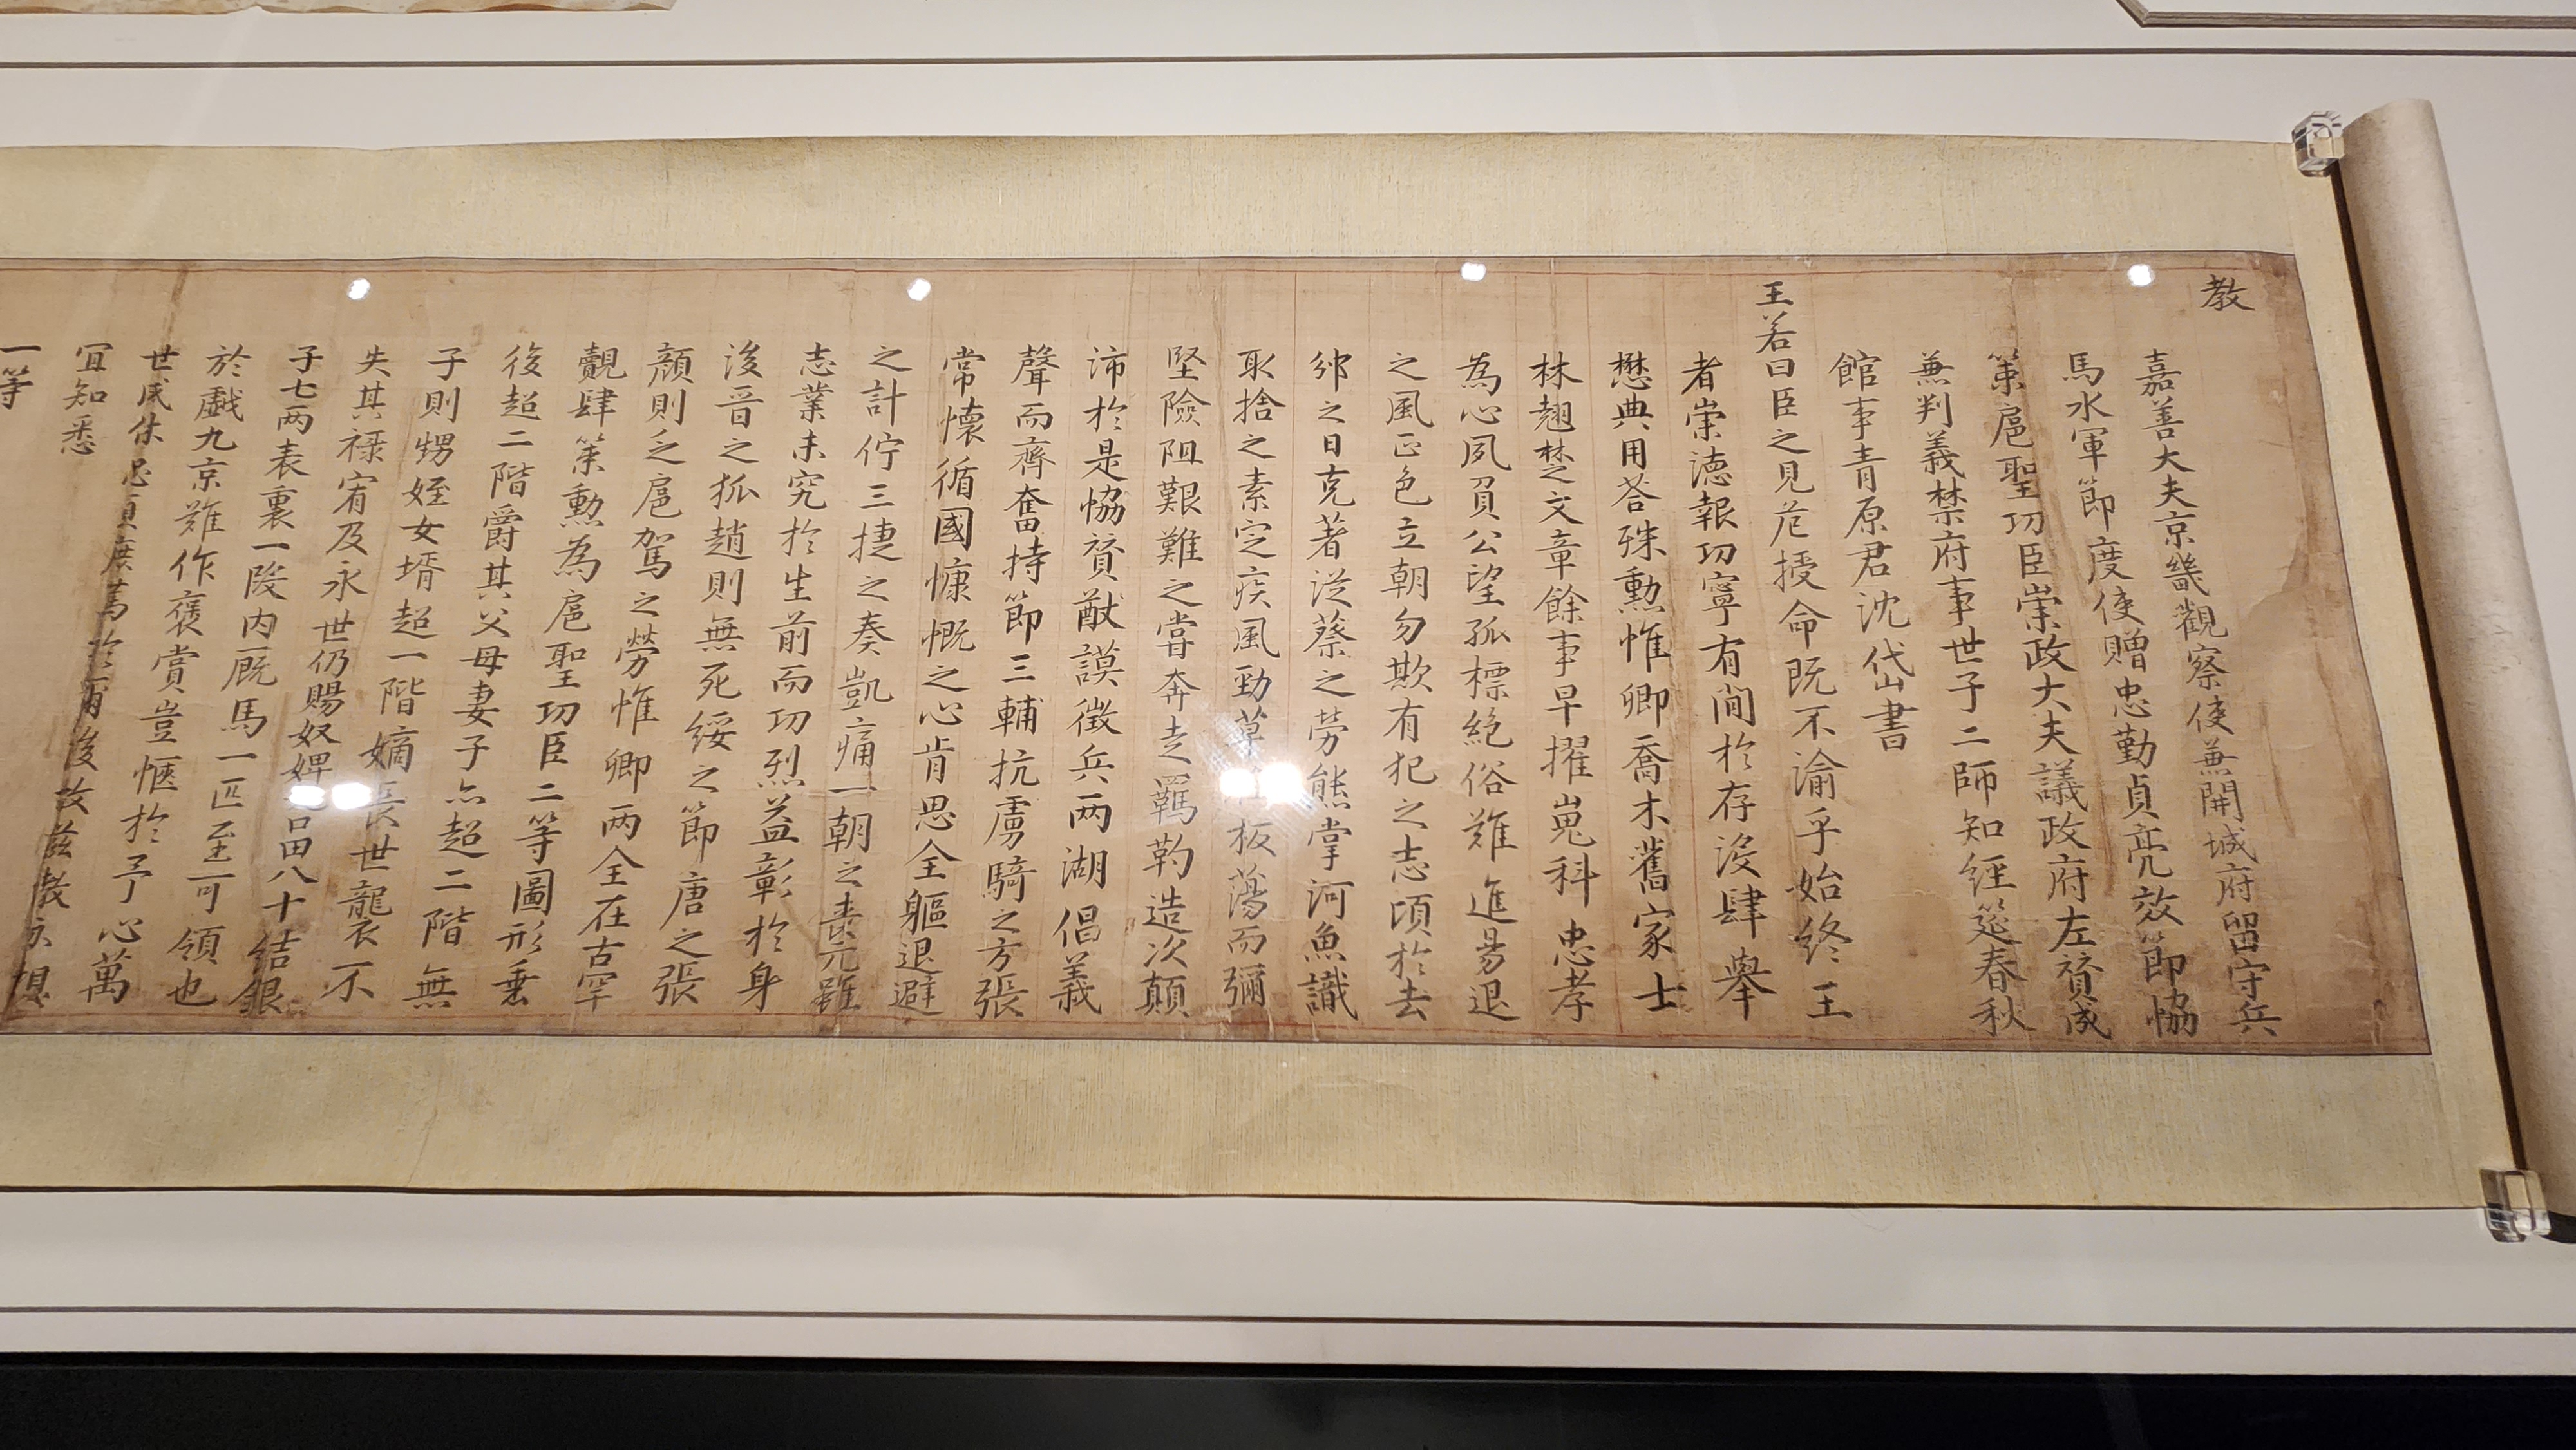 教
嘉善大夫京畿觀察使兼開城府留守兵
馬水軍節度使贈忠勤貞亮效節恊
策扈聖功臣崇政大夫議政府左贊成
兼判義禁府事世子二師知經筵春秋
館事青原君沈岱書
王若曰臣之見危授命既不渝乎始終王
者崇德報功寧有間於存沒肆舉
懋典用荅殊勳惟卿喬木舊家士
林翹楚文章餘事早擢嵬科忠孝
為心夙負公望孤標絕俗難進易退
之風正色立朝勿欺有犯之志頃於去
邠之日克著從蔡之勞熊掌河魚識
取捨之素定疾風勁草板蕩而彌
堅險阻艱難之嘗奔走羈靮造次顛
沛於是恊贊猷謨徵兵兩湖倡義
聲而齊奮持節三輔抗虜騎之方張
常懷循國慷慨之心肯思全軀退避
之計佇三捷之奏凱痛一朝之喪元雖
志業未究於生前而功烈益彰於身
後晉之狐趙則無死綏之節唐之張
顏則乏扈駕之勞惟卿兩全在古罕
覿肆策勳為扈聖功臣二等圖形垂
後超二階爵其父母妻子亦超二階無
子則甥姪女壻超一階嫡長世襲不
失其祿宥及永世仍賜奴婢田八十結銀
子七兩表裏一段內厩馬一匹至可領也
於戱九京難作褒賞豈愜於予心萬
世咸休忠貞庶篤於爾後故茲教示想
宜知悉
一等